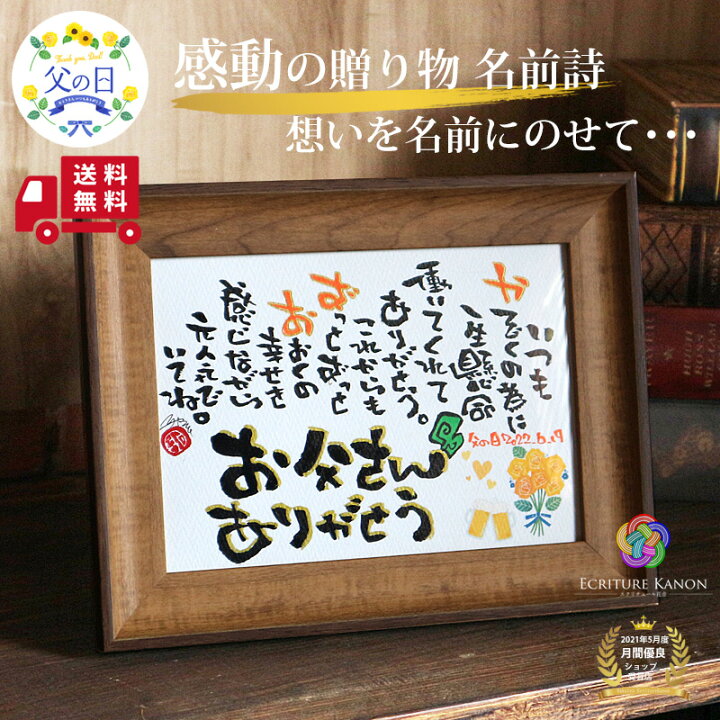 Thank you Dad!
父の日
送料
無料
感動の贈り物 名前詩
想いを名前にのせて・・・
いつも
かぞくの為に
一生懸命
働いてくれて
ありがとう。
これからも
ずっとずっと
おおくの
幸せを
感じながら
元気で
いてね。
父の日2022.6.19
お父さん
ありがとう
ECRITURE KANON
2021年5月度
月間優良
ショップ
受賞店